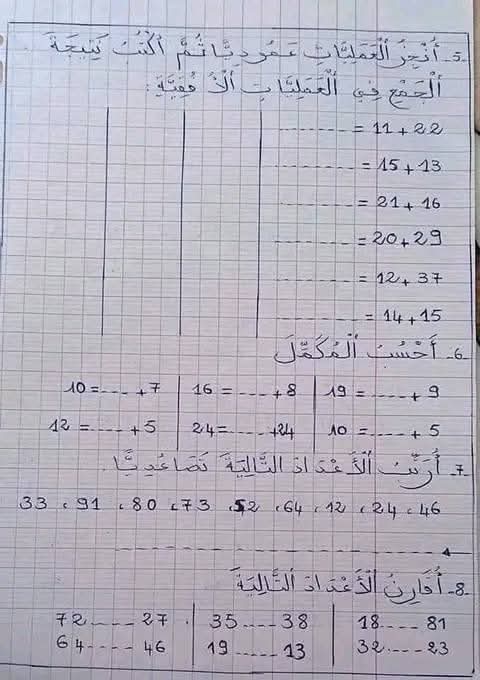 5- أُنْجِزُ ٱلْعَمَلِيَّاتِ عَمُودِيًّا ثُمَّ أَكْتُبُ نَتِيجَةَ
ٱلْجَمْعِ فِي ٱلْعَمَلِيَّاتِ ٱلْأُفُقِيَّةِ :
---------- = 11 + 22
---------- = 15 + 13
---------- = 21 + 16
---------- = 20 + 29
---------- = 12 + 37
---------- = 14 + 15
6- أَحْسُبُ ٱلْمُكَمِّلَ
10 = ---- + 7 | 16 = ---- + 8 | 19 = ---- + 9
12 = ---- + 5 | 24 = ---- + 24 | 10 = ---- + 5
7- أُرَتِّبُ ٱلْأَعْدَادَ ٱلتَّالِيَةَ تَصَاعُدِيًّا .
33 ، 91 ، 80 ، 73 ، 52 ، 64 ، 12 ، 24 ، 46
8- أُقَارِنُ ٱلْأَعْدَادَ ٱلتَّالِيَةَ
72 ---- 27 | 35 ---- 38 | 18 ---- 81
64 ---- 46 | 19 ---- 13 | 32 ---- 23